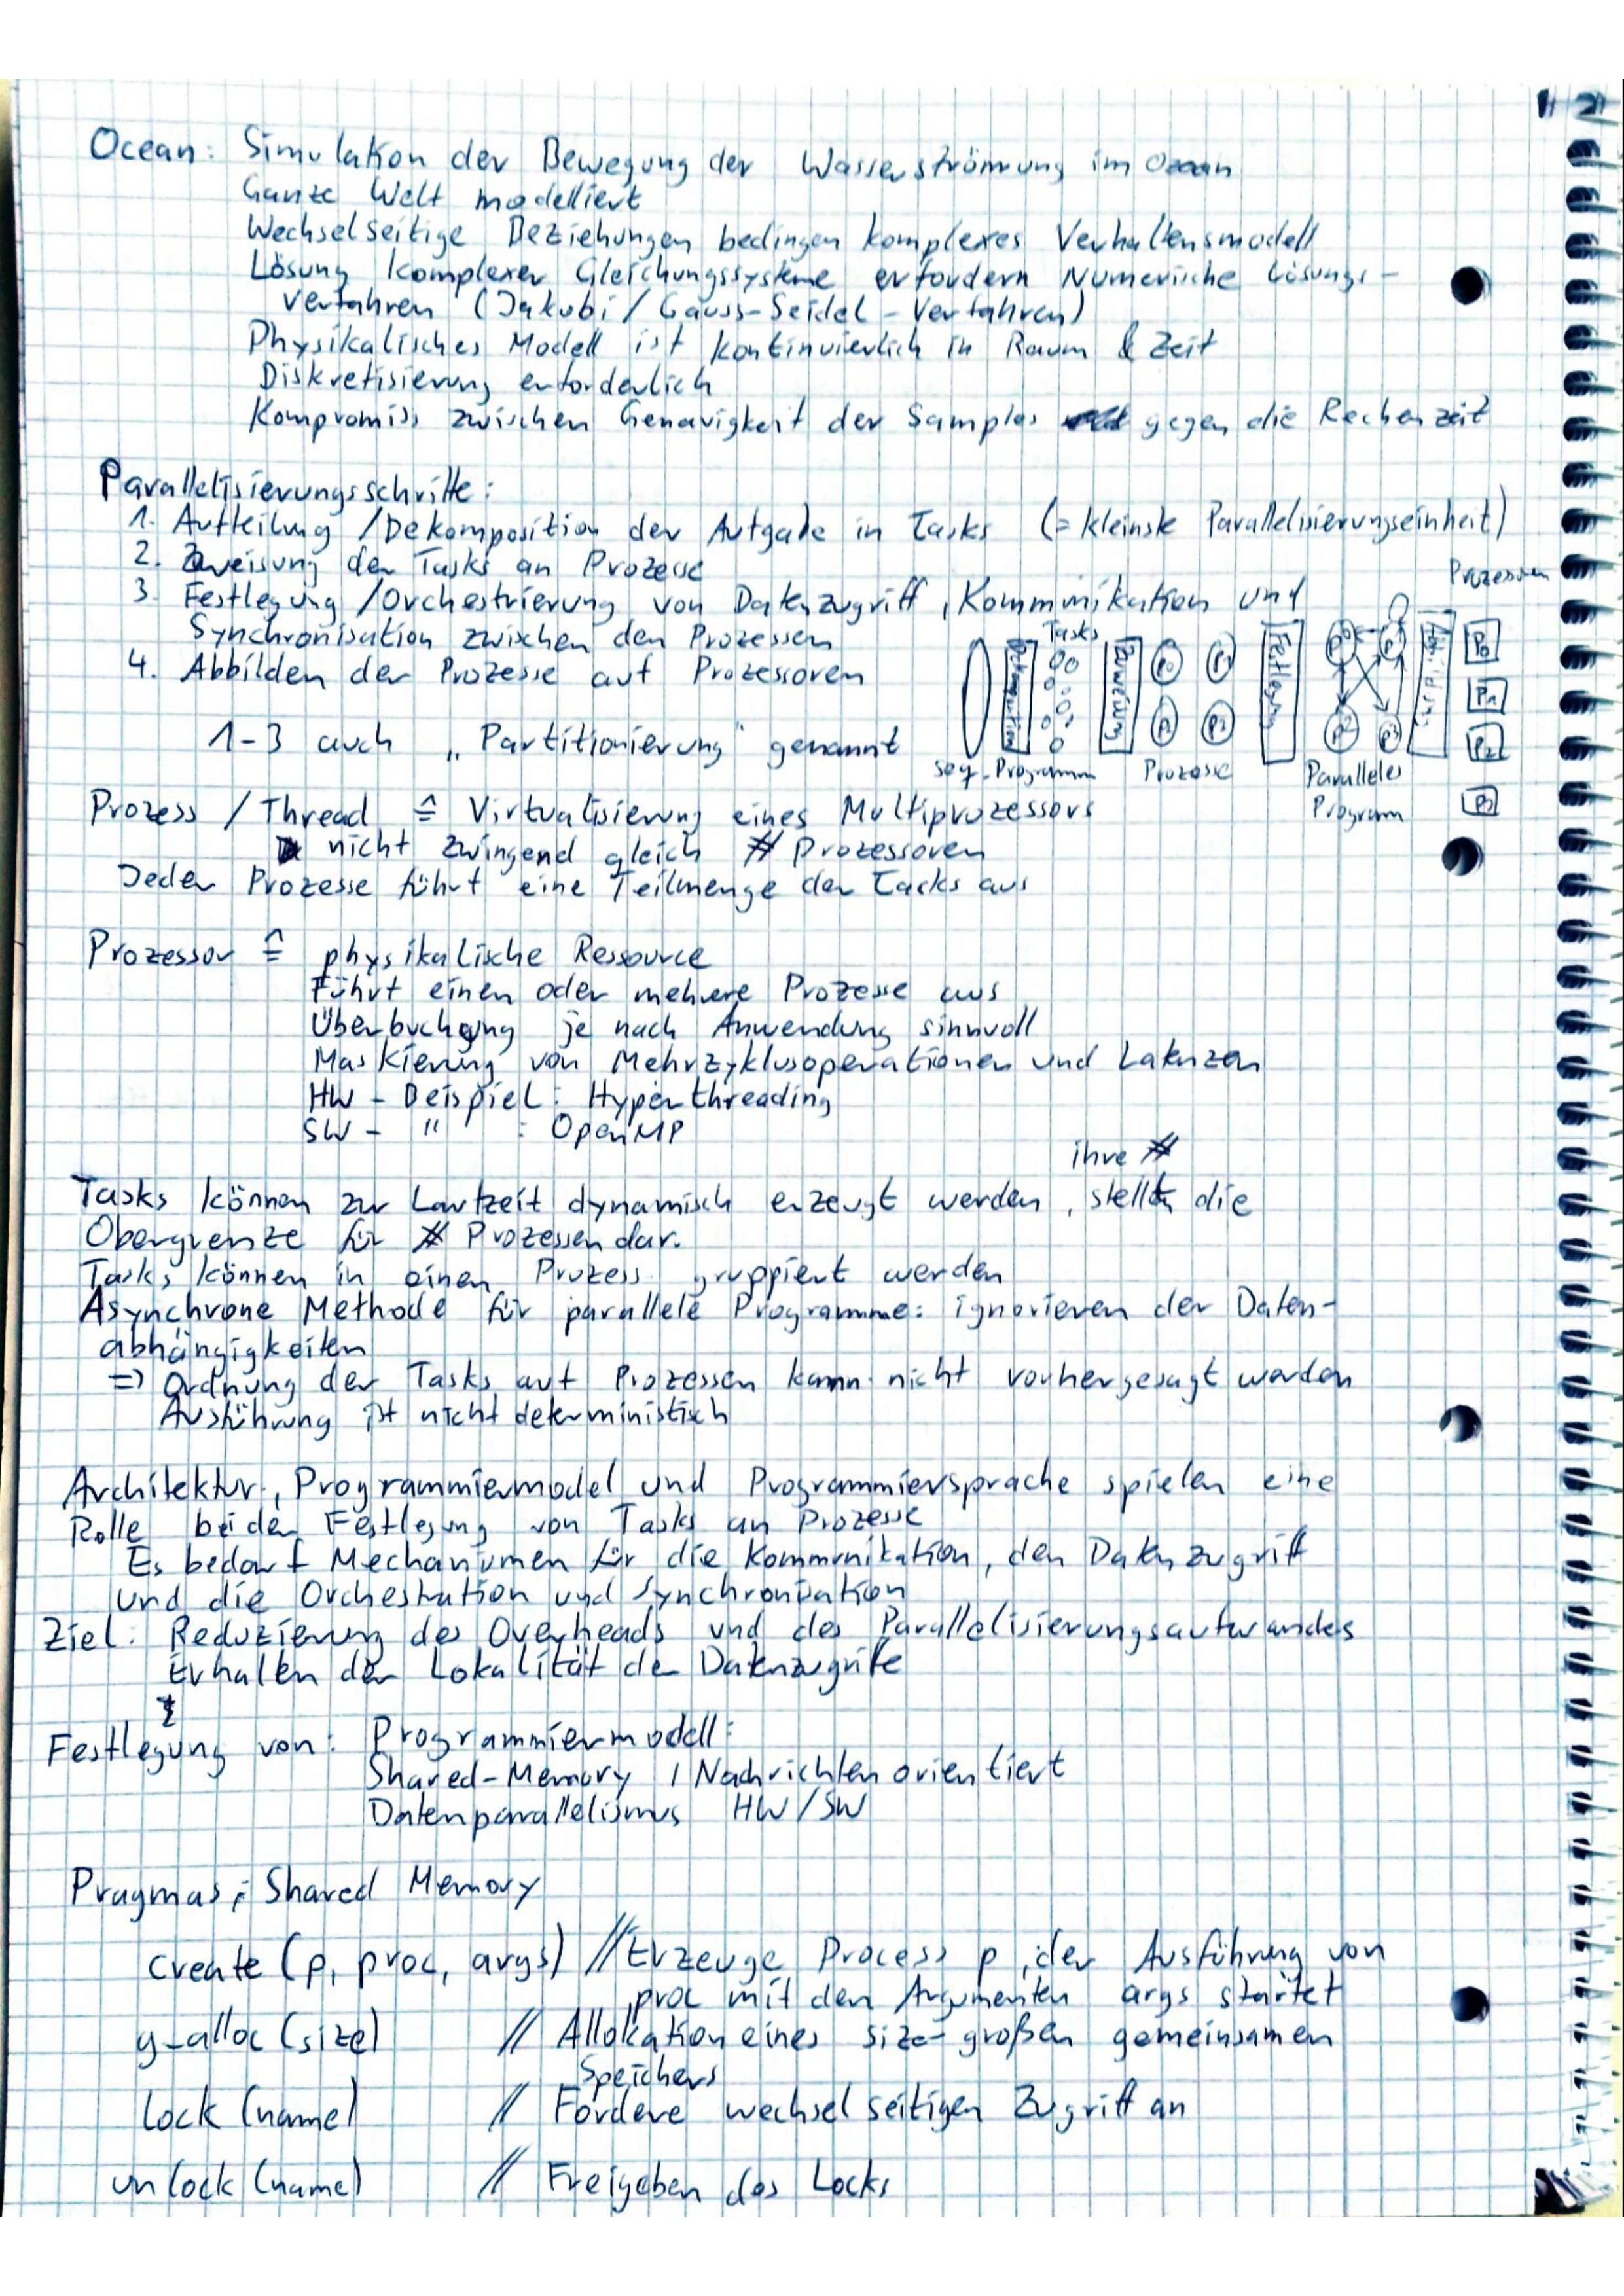 Ocean: Simulation der Bewegung der Wasserströmung im Ozean
Ganze Welt modelliert
Wechselseitige Beziehungen bedingen komplexes Verhaltensmodell
Lösung komplexer Gleichungssysteme erfordern Numerische Lösungs-
verfahren (Jakobi / Gauss-Seidel-Verfahren)
Physikalisches Modell ist kontinuierlich in Raum & Zeit
Diskretisierung erforderlich
Kompromiss zwischen Genauigkeit der Samples gegen die Rechenzeit
Parallelisierungsschritte:
1. Aufteilung / Dekomposition der Aufgabe in Tasks (= kleinste Parallelisierungseinheit)
2. Zuweisung der Tasks an Prozesse
3. Festlegung / Orchestrierung von Datenzugriff, Kommunikation und
Synchronisation zwischen den Prozessen
4. Abbilden der Prozesse auf Prozessoren
1-3 auch „Partitionierung" genannt
Tasks
Dekomposition
Zuweisung
Festlegung
Prozessoren
P0
P1
P2
P3
seq. Programm
Prozesse
Paralleles
Program
Prozess / Thread ≙ Virtualisierung eines Multiprozessors
nicht zwingend gleich # Prozessoren
Jeder Prozesse führt eine Teilmenge der Tacks aus
Prozessor ≙ physikalische Ressource
Führt einen oder mehrere Prozesse aus
Überbuchung je nach Anwendung sinnvoll
Maskierung von Mehrzyklusoperationen und Latenzen
HW - Beispiel: Hyperthreading
SW - " : OpenMP
ihre #
Tasks können zur Laufzeit dynamisch erzeugt werden, stellt die
Obergrenze für # Prozessen dar.
Tasks können in einen Prozess gruppiert werden
Asynchrone Methode für parallele Programme: ignorieren der Daten-
abhängigkeiten
=> Ordnung der Tasks auf Prozessen kann nicht vorhergesagt werden
Ausführung ist nicht deterministisch
Architektur, Programmiermodel und Programmiersprache spielen eine
Rolle bei der Festlegung von Tasks an Prozesse
Es bedarf Mechanismen für die Kommunikation, den Datenzugriff
und die Orchestration und Synchronisation
Ziel: Reduzierung des Overheads und des Parallelisierungsaufwandes
Erhalten der Lokalität der Datenzugrife
Festlegung von: Programmiermodell:
Shared-Memory / Nachrichtenorientiert
Datenparallelismus HW/SW
Pragmas: Shared Memory
create (p, proc, args) // Erzeuge Process p, der Ausführung von
proc mit den Argumenten args startet
g_alloc (size) // Allokation eines size-großen gemeinsamen
Speichers
lock (name) // Fordere wechselseitigen Zugriff an
unlock (name) // Freigeben des Locks